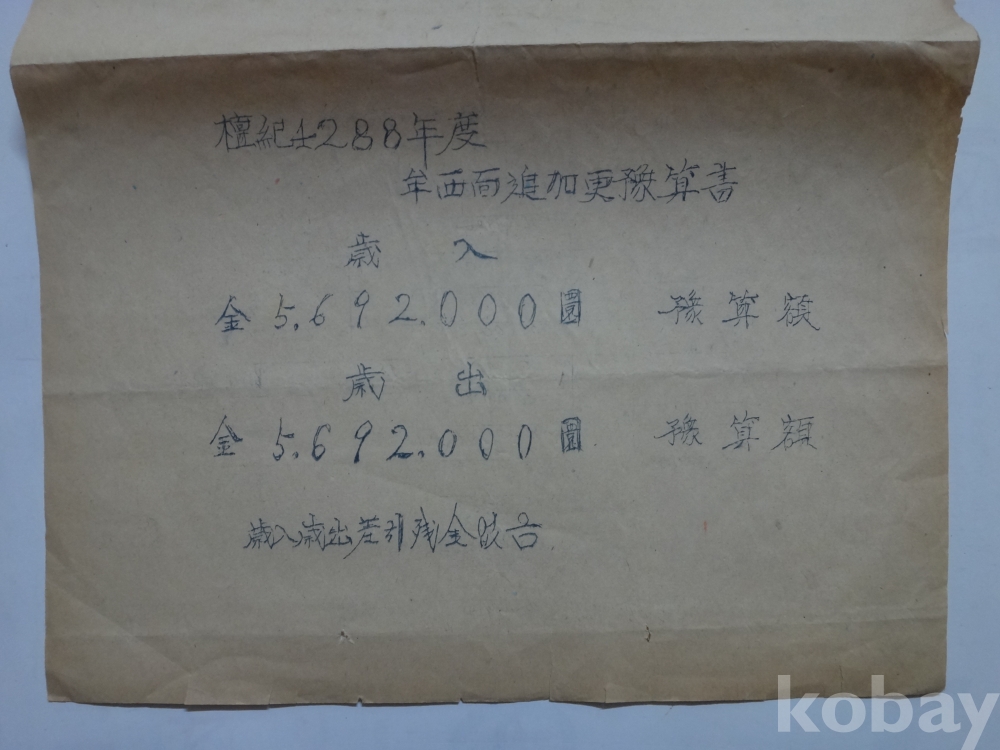 檀紀4288年度
牟西面追加更豫算書
歲入
金 5.692.000圓 豫算額
歲出
金 5.692.000圓 豫算額
歲入歲出差引殘金
kobay